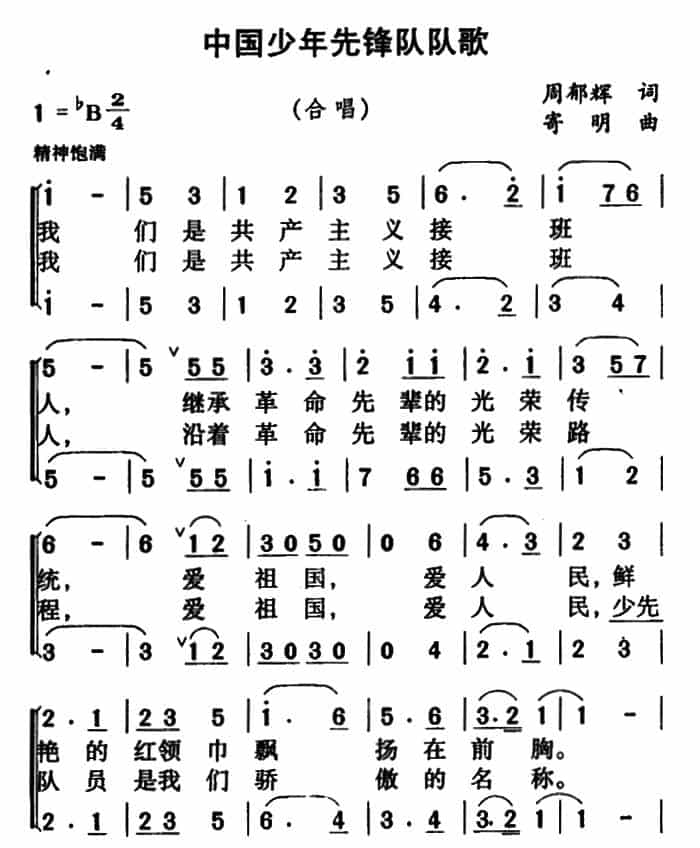 中国少年先锋队队歌
周郁辉 词
1=♭B 2/4 (合唱)
寄明 曲
精神饱满
i - | 5 3 | 1 2 | 3 5 | 6. 2 | i 76 |
我 们是共产主义接 班
我 们是共产主义接 班
i - | 5 3 | 1 2 | 3 5 | 4. 2 | 3 4 |
5 - | 5 ∨ 55 | 3. 3 | 2 i i | 2. i | 3 57 |
人, 继承革命先辈的光荣传
人, 沿着革命先辈的光荣路
5 - | 5 ∨ 55 | i. i | 7 66 | 5. 3 | 1 2 |
6 - | 6 ∨ 12 | 3050 | 0 6 | 4. 3 | 2 3 |
统, 爱祖国, 爱人 民,鲜
程, 爱祖国, 爱人 民,少先
3 - | 3 ∨ 12 | 3030 | 0 4 | 2. 1 | 2 3 |
2. 1 | 23 5 | i. 6 | 5. 6 | 3.2 1 | 1 - |
艳的红领巾飘 扬在前胸。
队员是我们骄 傲的名称。
2. 1 | 23 5 | 6. 4 | 3. 4 | 3.2 1 | 1 - |